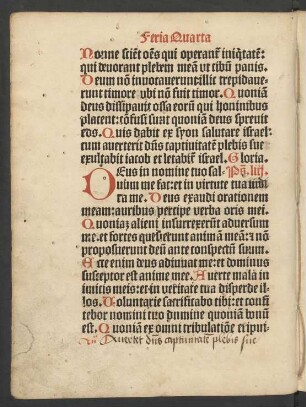 Feria Quarta
Nonne sciēt oēs qui operant᷑ iniq̄tatē:
qui devorant plebem meā ut cibū panis.
Deum nō invocaverunt: illic trepidave-
runt timore ubi nō fuit timor. Quoniā
deus dissipavit ossa eorū qui hominibus
placent: cōfusi sunt quoniā deus sprevit
eos. Quis dabit ex syon salutare israel:
cum averterit dn̄s captivitatē plebis sue
exultabit iacob et letabit᷑ israel. Gloria.
DEus in nomine tuo sal- Ps. liij.
vum me fac: et in virtute tua iudi
ca me. Deus exaudi orationem
meam: auribus percipe verba oris mei.
Quoniaz alieni insurrexerūt adversum
me. et fortes quesierunt animā meā: ⁊ nō
proposuerunt deū ante conspectū suum.
Ecce enim deus adiuvat me: et dominus
susceptor est anime mee. Averte mala in
imicis meis: et in veritate tua disperde il-
los. Voluntarie sacrificabo tibi: et confi
tebor nomini tuo domine quoniā bonū
est. Quoniā ex omni tribulatiōe eripui-
Averter dn̄s captivitatē plebis sue